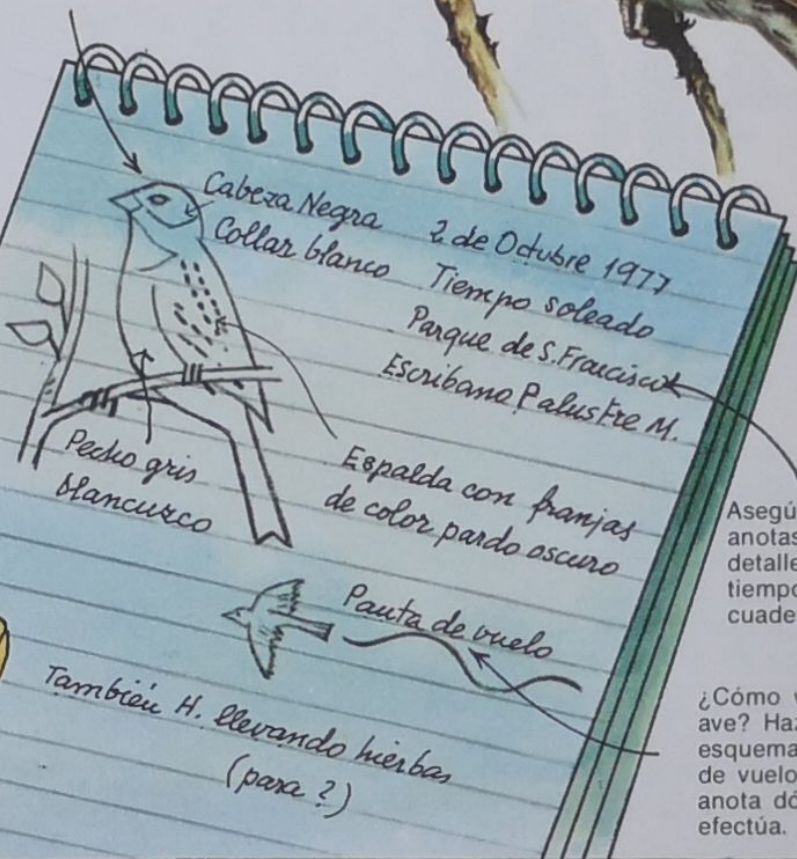 Cabeza Negra
Collar blanco
2 de Octubre 1977
Tiempo soleado
Parque de S. Francisco
Escribano Palustre M.
Pecho gris
blancuzco
Espalda con franjas
de color pardo oscuro
Pauta de vuelo
También H. llevando hierbas
(para ?)
Asegú
anotas
detalle
tiempo
cuade
¿Cómo v
ave? Haz
esquema
de vuelo
anota dó
efectúa.